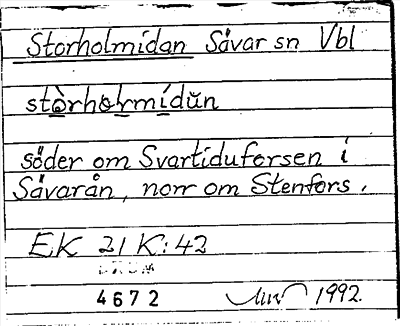 Storholmidan Sävar sn Vbl
stòrholmídŭn
söder om Svartiduforsen i
Sävarån, norr om Stenfors.
EK 21 K:42
DAUM
4672 1992.